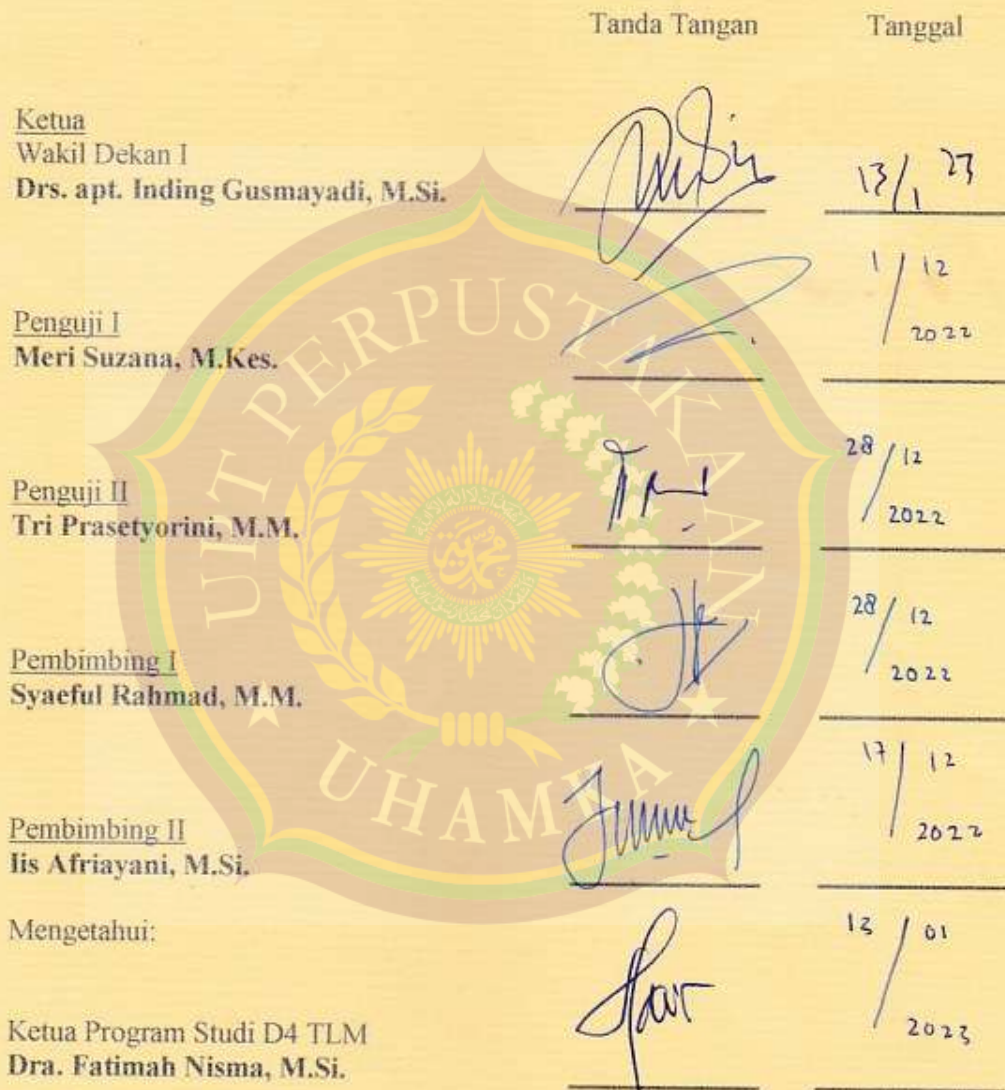 Tanda Tangan Tanggal
Ketua
Wakil Dekan I
Drs. apt. Inding Gusmayadi, M.Si.
13/1 23
1/12
2022
Penguji I
Meri Suzana, M.Kes.
28/12
2022
Penguji II
Tri Prasetyorini, M.M.
28/12
2022
Pembimbing I
Syaeful Rahmad, M.M.
17/12
2022
Pembimbing II
Iis Afriayani, M.Si.
Mengetahui:
13/01
2023
Ketua Program Studi D4 TLM
Dra. Fatimah Nisma, M.Si.
UIT PERPUSTAKAAN
UHAMKA